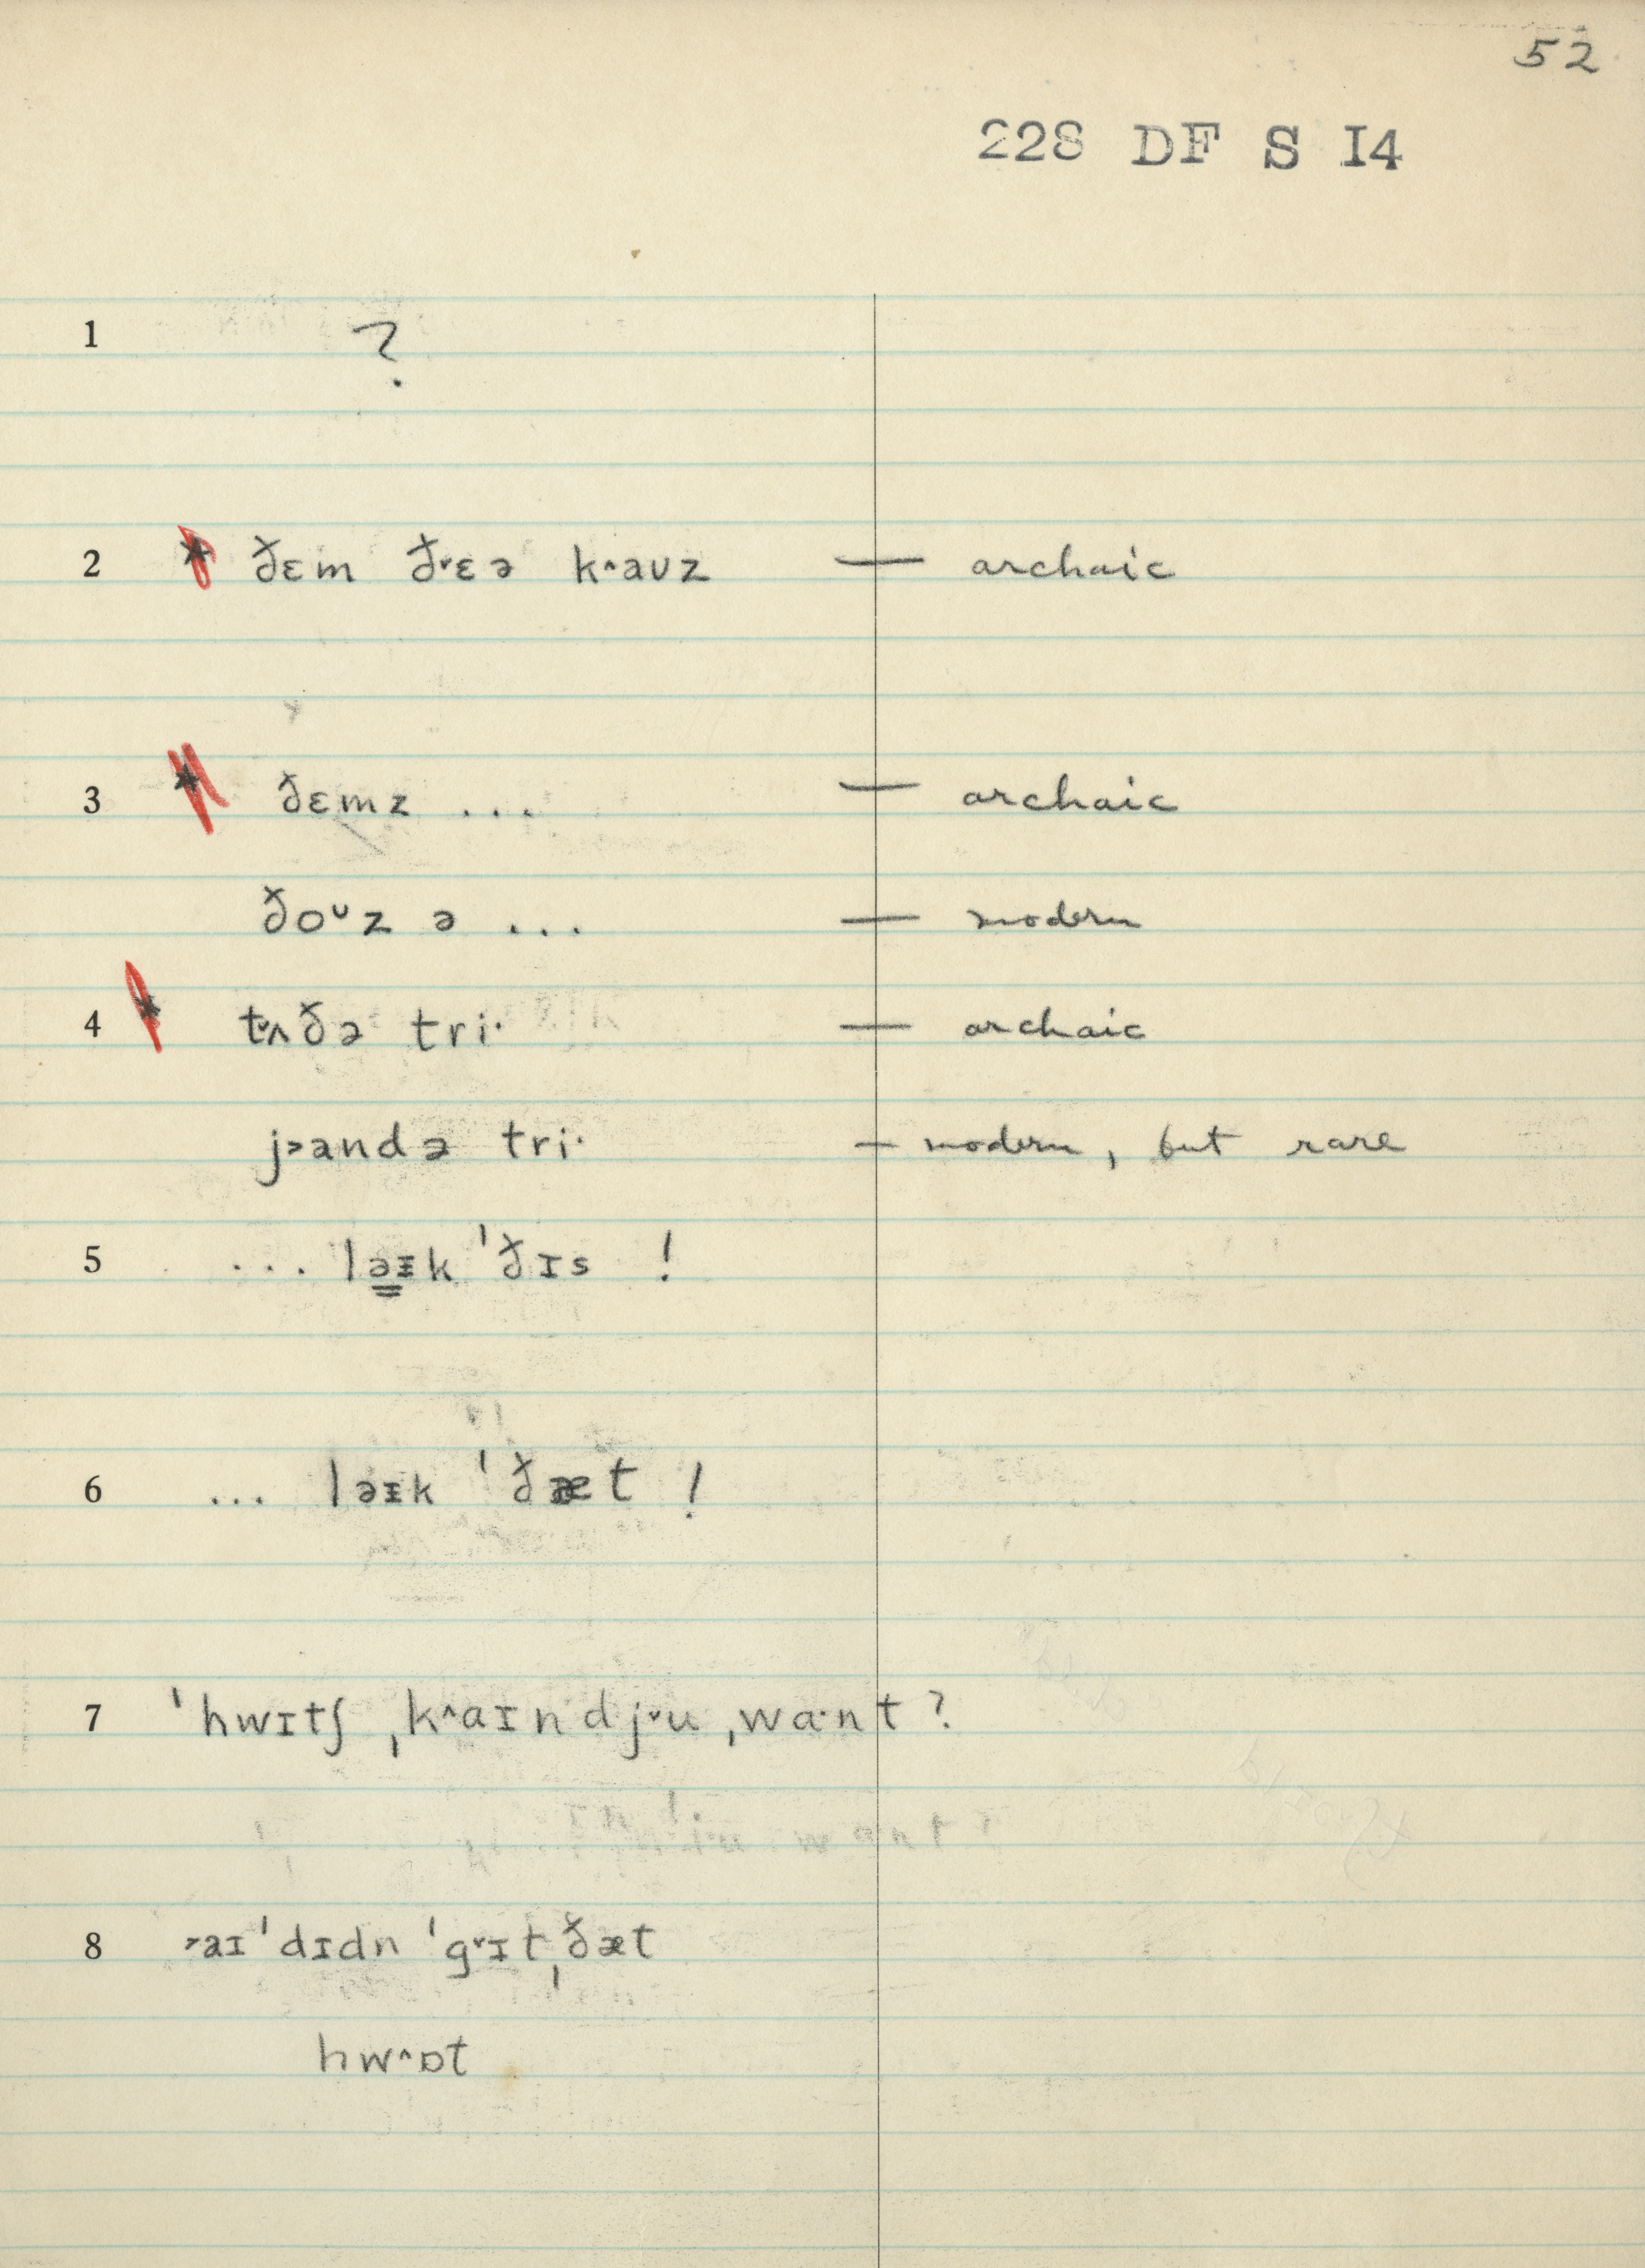 52
228 DF S I4
1 ?
2 * ðɛm ð˅ɛə k^aʊz — archaic
3 * ðɛmz ... — archaic
ðoᶷz ə ... — modern
4 * t˅ʌðə tri· — archaic
j˃andə tri· — modern, but rare
5 ... ləɪk ˈðɪs !
6 ... ləɪk ˈðæt !
7 ˈhwɪtʃ ˌk^aɪndj˅u ˌwɑ·nt ?
8 ˃aɪˈdɪdn ˈg˅ɪtˌðæt
hw^ɒt